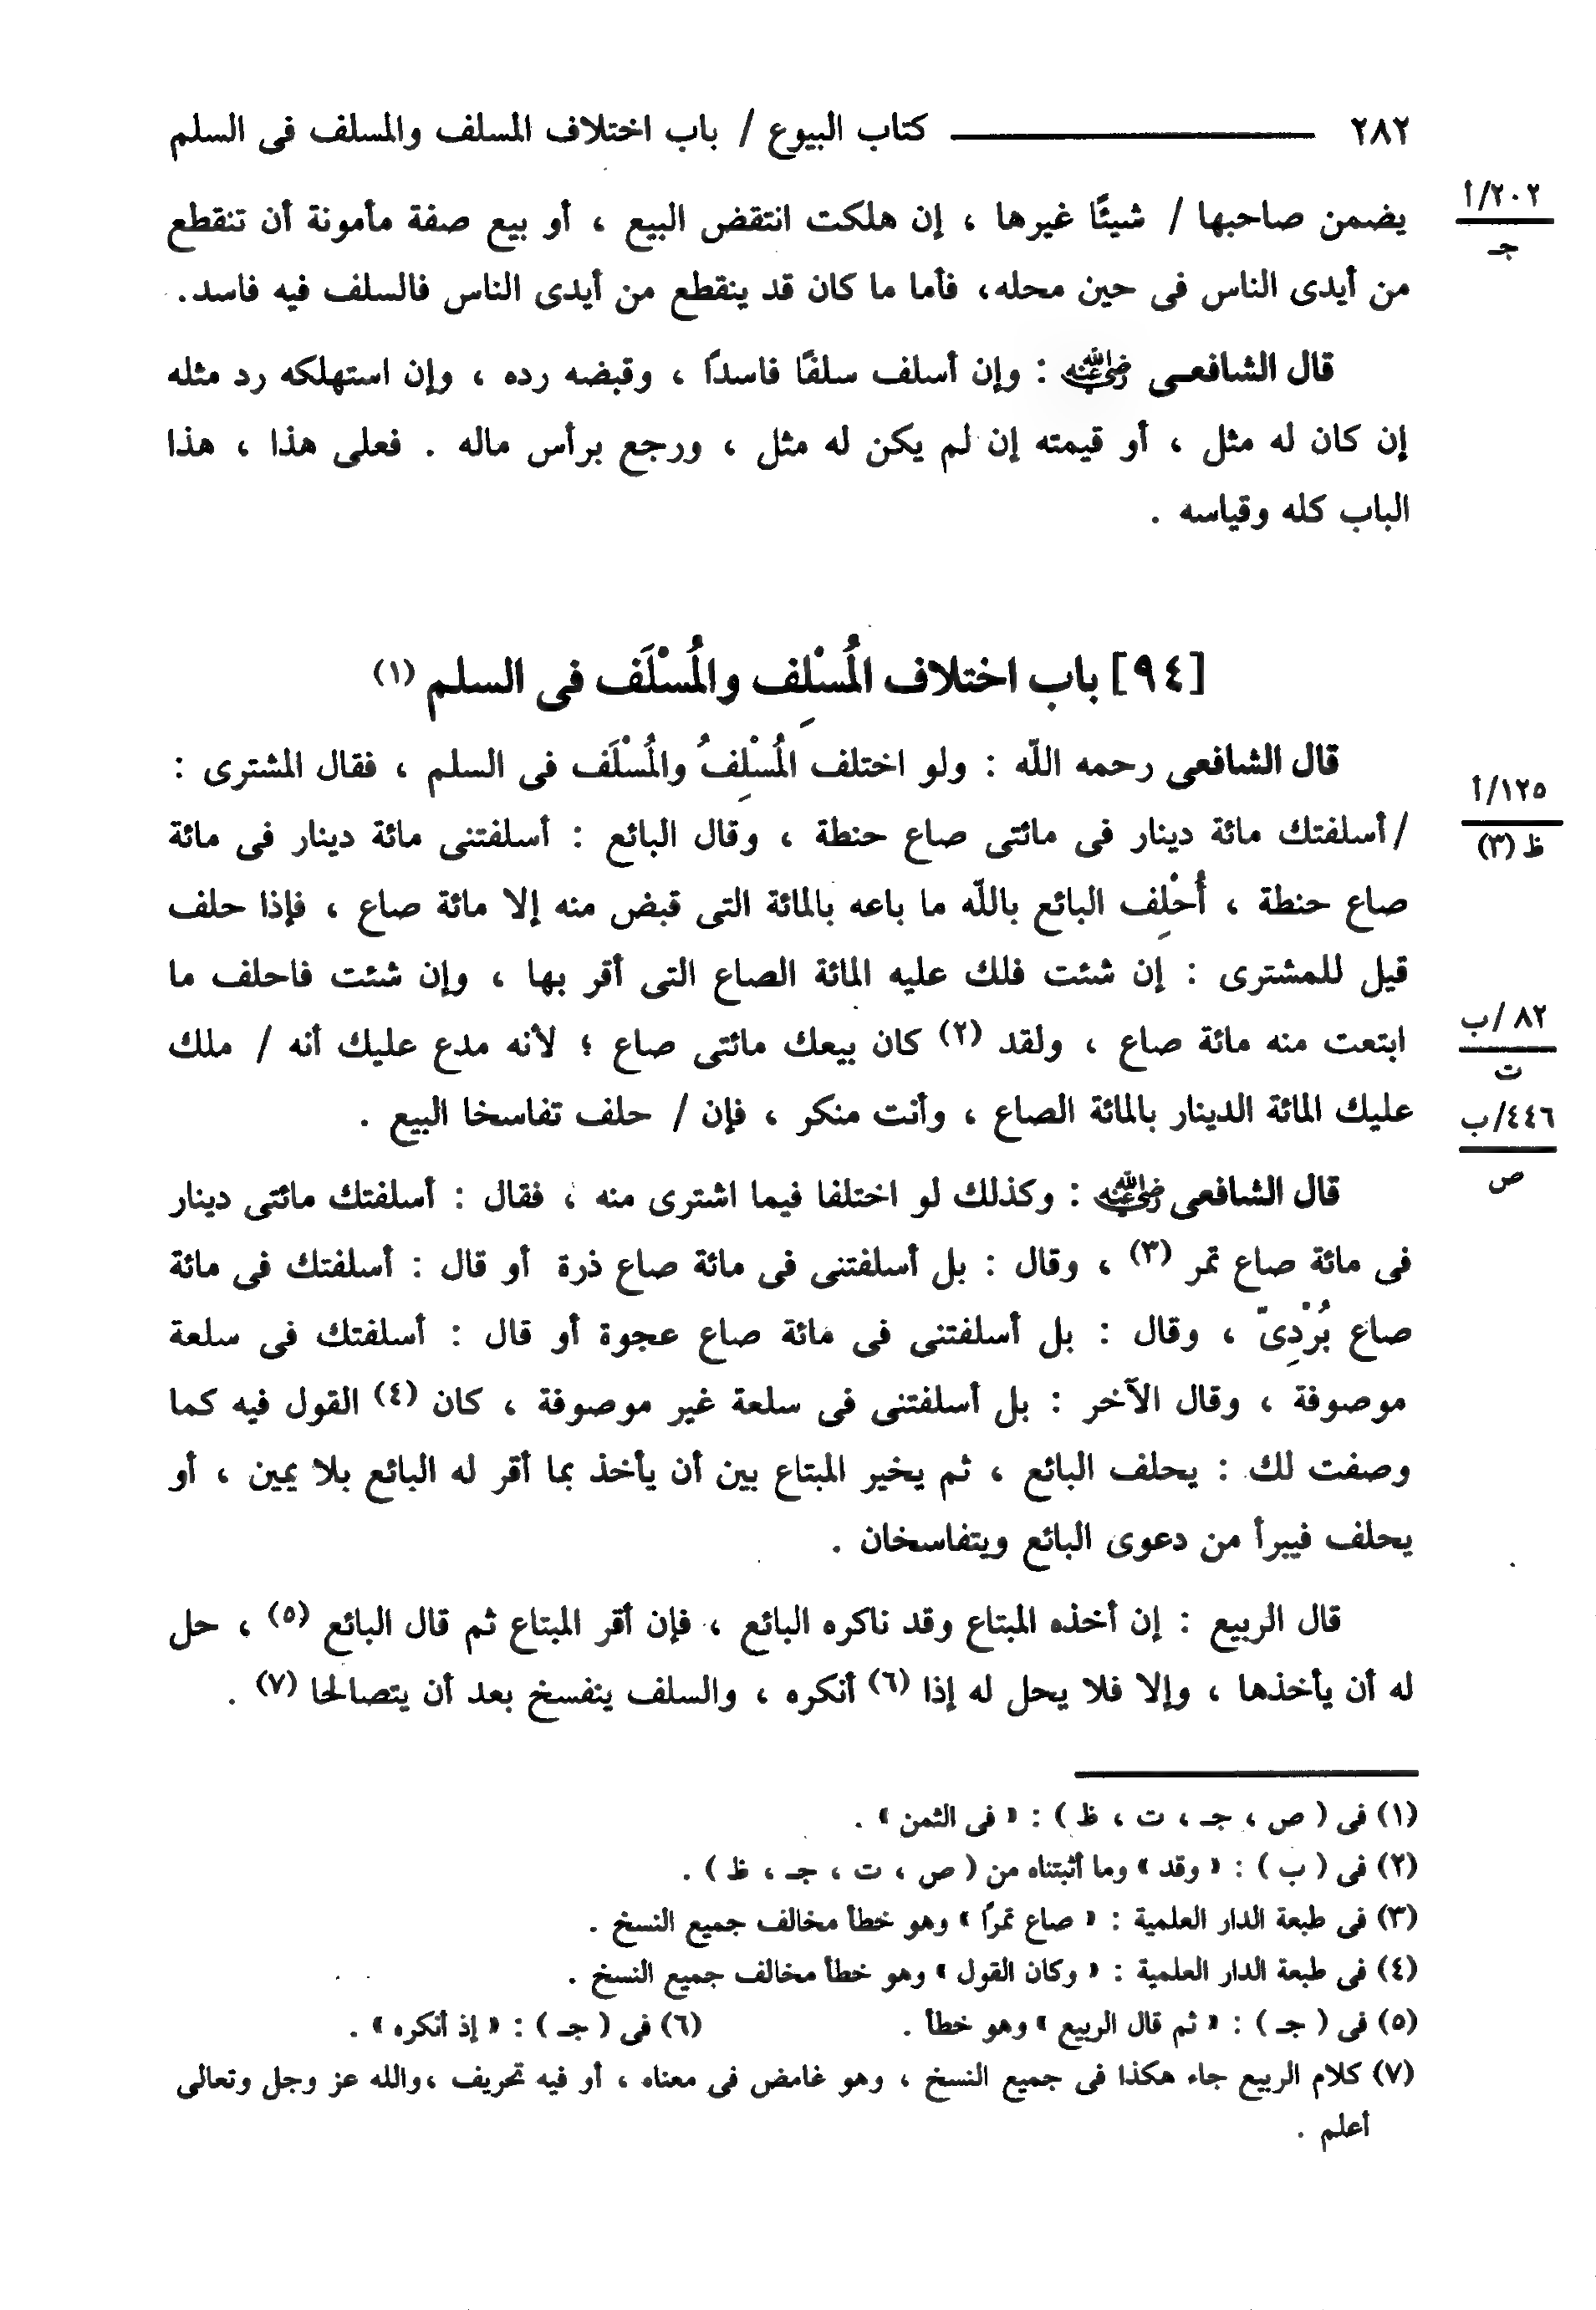 ٢٨٢ كتاب البيوع / باب اختلاف المسلف والمسلف فى السلم
٢٠٢/أ
جـ
يضمن صاحبها / شيئًا غيرها ، إن هلكت انتقض البيع ، أو بيع صفة مأمونة أن تنقطع
من أيدى الناس فى حين محله، فأما ما كان قد ينقطع من أيدى الناس فالسلف فيه فاسد.
قال الشافعى رضي الله عنه : وإن أسلف سلفًا فاسدًا ، وقبضه رده ، وإن استهلكه رد مثله
إن كان له مثل ، أو قيمته إن لم يكن له مثل ، ورجع برأس ماله . فعلى هذا ، هذا
الباب كله وقياسه .
[٩٤] باب اختلاف المُسْلِف والمُسْلَف فى السلم (١)
قال الشافعى رحمه اللّه : ولو اختلف المُسْلِفُ والمُسْلَف فى السلم ، فقال المشترى :
١٢٥/أ
ظ (٣)
/أسلفتك مائة دينار فى مائتى صاع حنطة ، وقال البائع : أسلفتنى مائة دينار فى مائة
صاع حنطة ، أُحْلِف البائع باللّه ما باعه بالمائة التى قبض منه إلا مائة صاع ، فإذا حلف
قيل للمشترى : إن شئت فلك عليه المائة الصاع التى أقر بها ، وإن شئت فاحلف ما
٨٢ /ب
ت
ابتعت منه مائة صاع ، ولقد (٢) كان بيعك مائتى صاع ؛ لأنه مدع عليك أنه / ملك
٤٤٦/ب
ص
عليك المائة الدينار بالمائة الصاع ، وأنت منكر ، فإن / حلف تفاسخا البيع .
قال الشافعى رضي الله عنه : وكذلك لو اختلفا فيما اشترى منه ، فقال : أسلفتك مائتى دينار
فى مائة صاع تمر (٣) ، وقال : بل أسلفتنى فى مائة صاع ذرة أو قال : أسلفتك فى مائة
صاع بُرْدِىّ ، وقال : بل أسلفتنى فى مائة صاع عجوة أو قال : أسلفتك فى سلعة
موصوفة ، وقال الآخر : بل أسلفتنى فى سلعة غير موصوفة ، كان (٤) القول فيه كما
وصفت لك : يحلف البائع ، ثم يخير المبتاع بين أن يأخذ بما أقر له البائع بلا يمين ، أو
يحلف فيبرأ من دعوى البائع ويتفاسخان .
قال الربيع : إن أخذه المبتاع وقد ناكره البائع ، فإن أقر المبتاع ثم قال البائع (٥) ، حل
له أن يأخذها ، وإلا فلا يحل له إذا (٦) أنكره ، والسلف ينفسخ بعد أن يتصالحا (٧) .
(١) فى ( ص ، جـ ، ت ، ظ ) : « فى الثمن » .
(٢) فى ( ب ) : « وقد » وما أثبتناه من ( ص ، ت ، جـ ، ظ ) .
(٣) فى طبعة الدار العلمية : « صاع تمرًا » وهو خطأ مخالف جميع النسخ .
(٤) فى طبعة الدار العلمية : « وكان القول » وهو خطأ مخالف جميع النسخ .
(٥) فى ( جـ ) : « ثم قال الربيع » وهو خطأ . (٦) فى ( جـ ) : « إذ أنكره » .
(٧) كلام الربيع جاء هكذا فى جميع النسخ ، وهو غامض فى معناه ، أو فيه تحريف ،والله عز وجل وتعالى
أعلم .